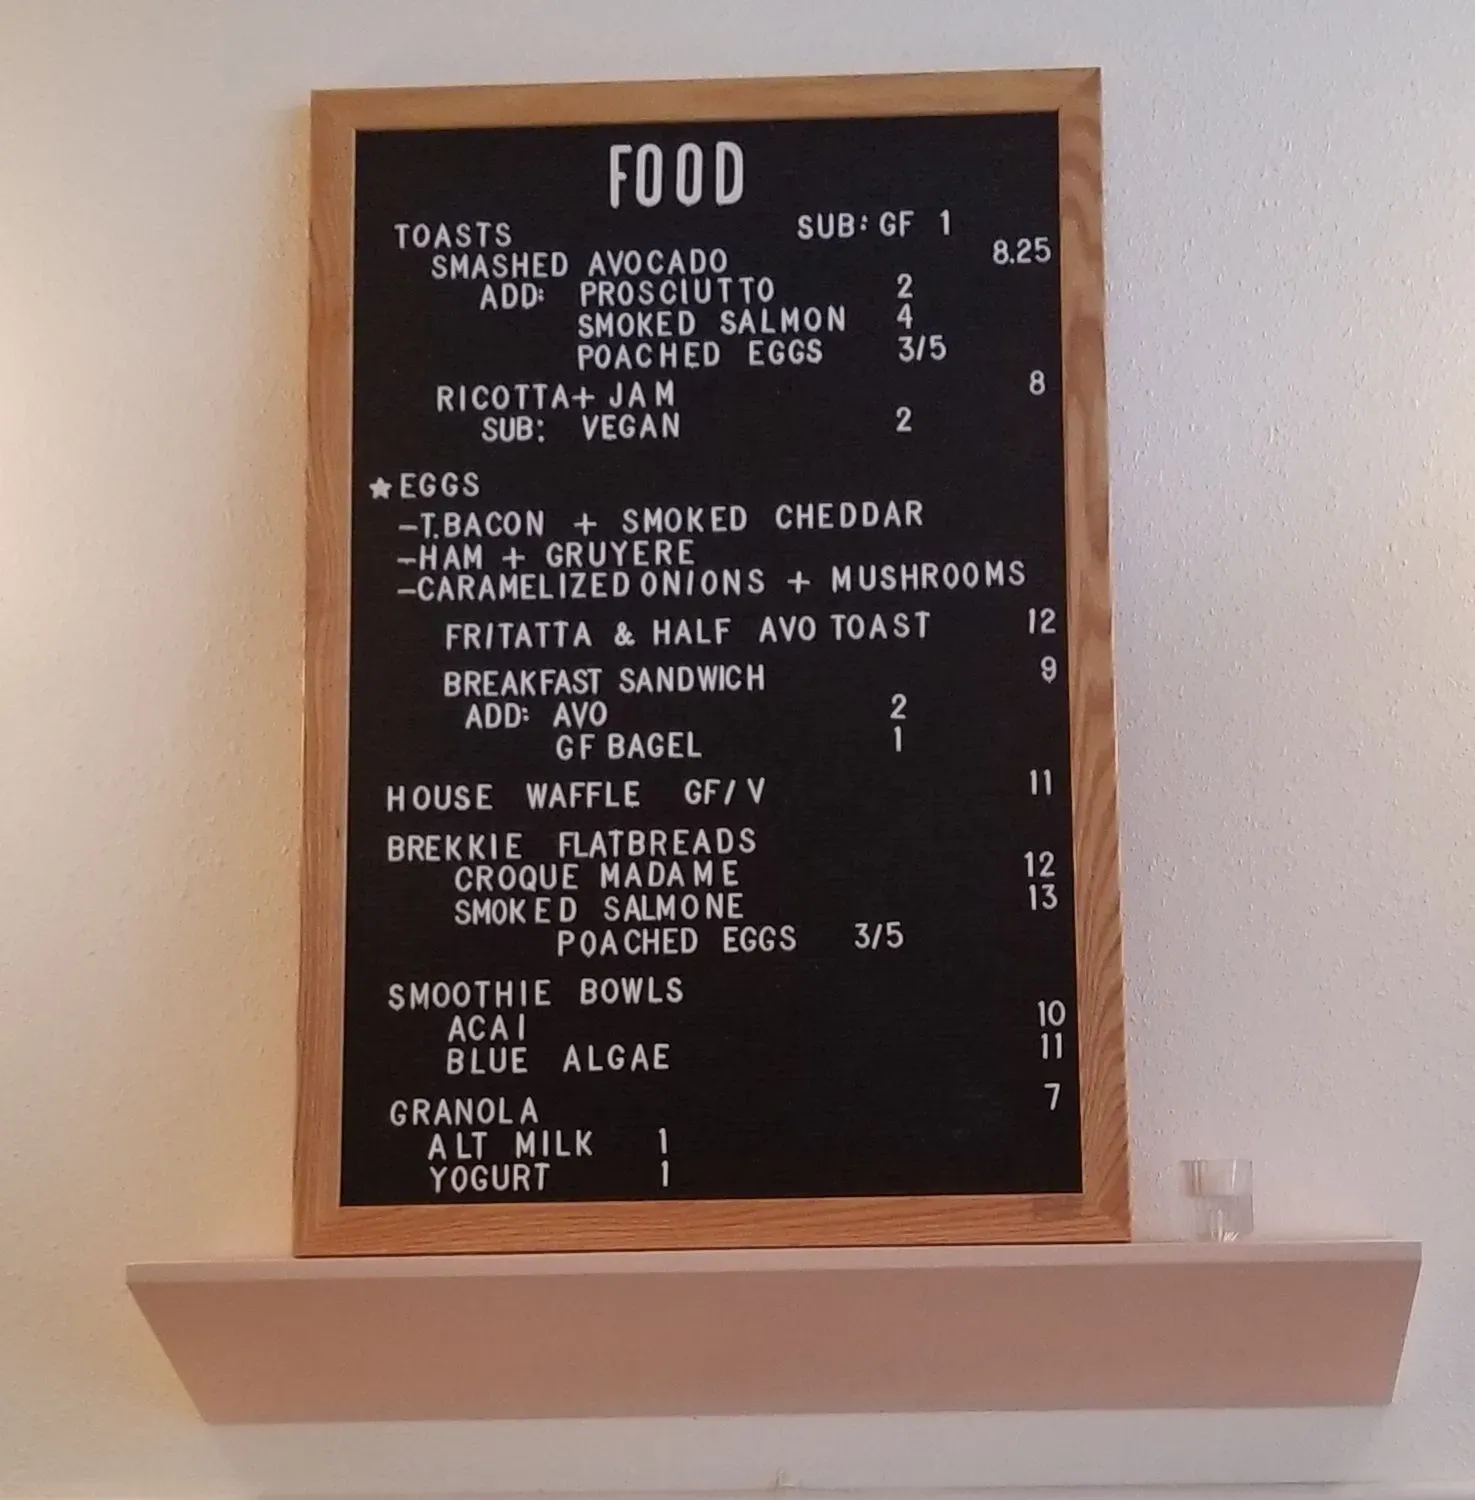 FOOD
TOASTS SUB: GF 1
SMASHED AVOCADO 8.25
ADD: PROSCIUTTO 2
SMOKED SALMON 4
POACHED EGGS 3/5
RICOTTA+ JAM 8
SUB: VEGAN 2
★EGGS
-T.BACON + SMOKED CHEDDAR
-HAM + GRUYERE
-CARAMELIZED ONIONS + MUSHROOMS
FRITATTA & HALF AVO TOAST 12
BREAKFAST SANDWICH 9
ADD: AVO 2
GF BAGEL 1
HOUSE WAFFLE GF/V 11
BREKKIE FLATBREADS
CROQUE MADAME 12
SMOKED SALMONE 13
POACHED EGGS 3/5
SMOOTHIE BOWLS
ACAI 10
BLUE ALGAE 11
GRANOLA 7
ALT MILK 1
YOGURT 1